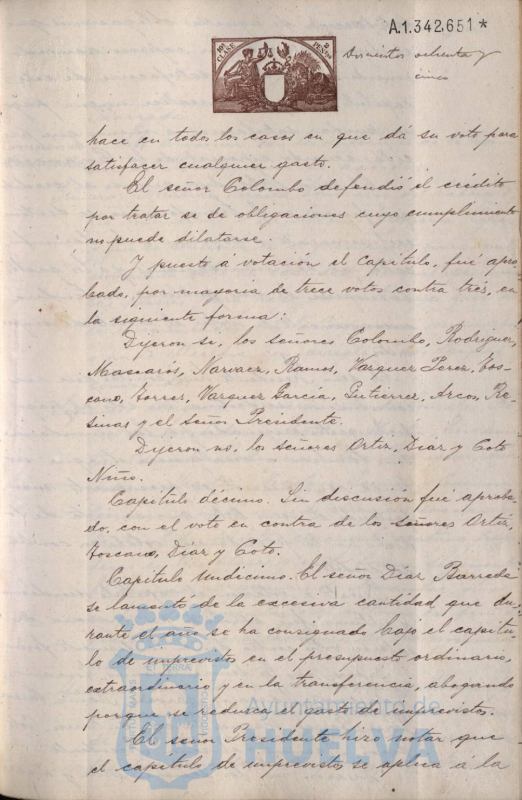 A.1.342.651*
10ª CLASE
2 PESETAS
Doscientos ochenta y
cinco
hace en todos los casos en que dá su voto para
satisfacer cualquier gasto.
El señor Colombo defendió el crédito
por tratar se de obligaciones cuyo cumplimiento
no puede dilatarse.
Y puesto á votación el Capítulo, fué apro-
bado, por mayoria de trece votos contra trés, en
la siguiente forma:
Dijeron si, los señores Colombo, Rodriguez,
Mascarós, Narvaez, Ramos, Vazquez Perez, Tos-
cano, Torres, Vazquez García, Gutiérrez, Arcos, Re-
sinas y el señor Presidente.
Dijeron no, los señores Ortiz, Diaz y Coto
Niño.
Capítulo décimo. Sin discusión fué aproba-
do, con el voto en contra de los señores Ortiz,
Toscano, Diaz y Coto.
Capítulo Undicimo. El señor Diaz Barreda
se lamentó de la excesiva cantidad que du-
rante el año se ha consignado bajo el capítu-
lo de imprevistos en el presupuesto ordinario,
extraordinario y en la transferencia, abogando
porque se reduzca el gasto de imprevistos.
El señor Presidente hizo notar que
el capítulo de imprevistos se aplica á la
Ayuntamiento de
HUELVA